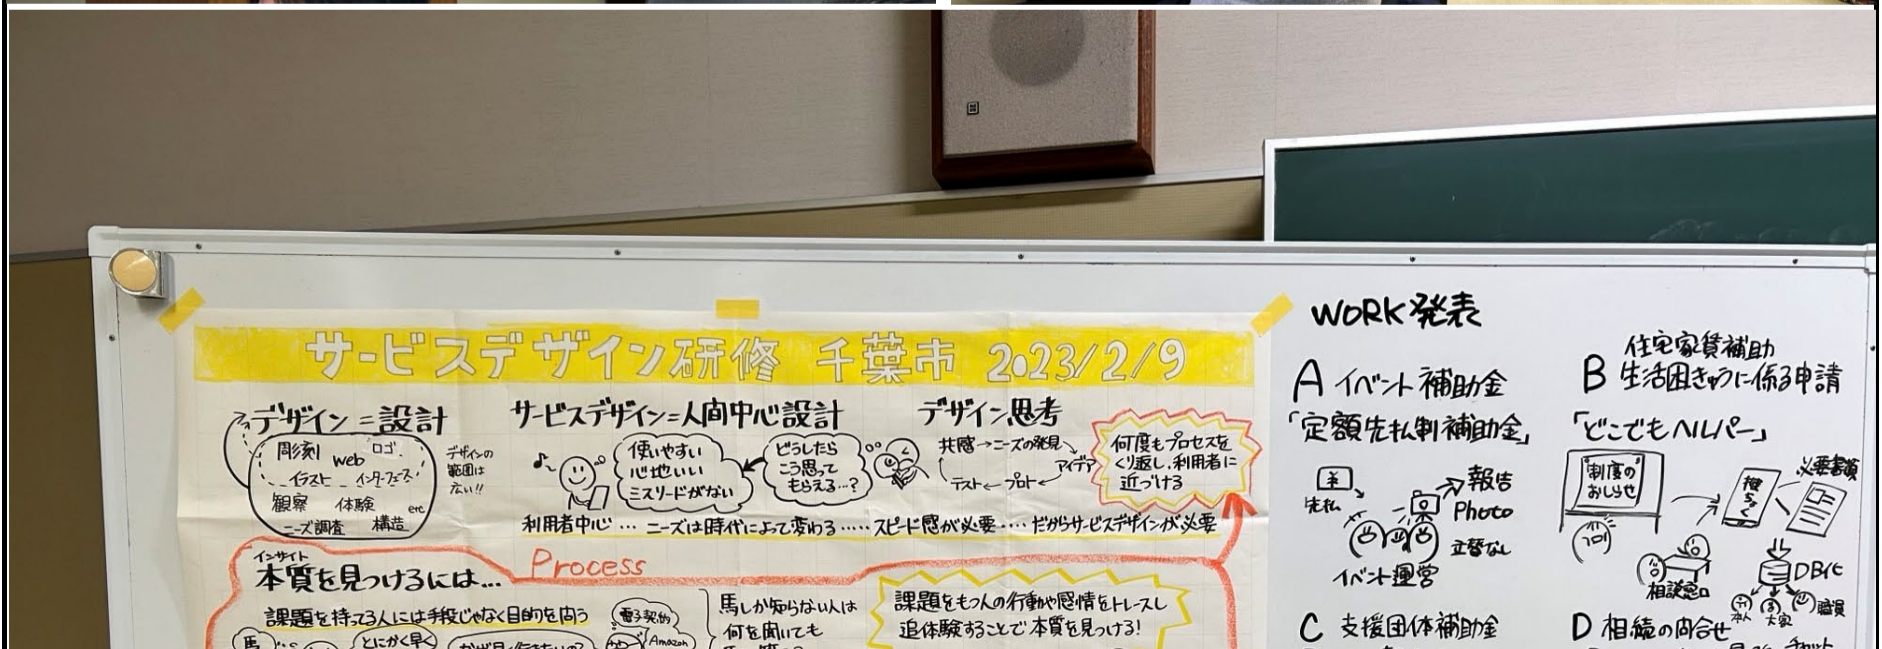 サービスデザイン研修 千葉市 2023/2/9
デザイン=設計
彫刻
web
ロゴ
イラスト
インターフェース
観察
体験
ニーズ調査
構造
etc
デザインの
範囲は
広い!!
サービスデザイン=人間中心設計
使いやすい
心地いい
ミスリードがない
どうしたら
こう思って
もらえる…?
デザイン思考
共感→ニーズの発見
アイデア
テスト←プロト
何度もプロセスを
くり返し、利用者に
近づける
利用者中心…ニーズは時代によって変わる……スピード感が必要……だからサービスデザインが必要
Process
インサイト
本質を見つけるには…
課題を持ってる人には手段じゃなく目的を問う
馬
とにかく早く
電子契約
Amazon
馬しか知らない人は
何を聞いても
課題をもつ人の行動や感情をトレースし
追体験することで本質を見つける!
WORK発表
A イベント補助金
「定額先払制補助金」
先払
報告
Photo
立替なし
イベント運営
B 住宅家賃補助
生活困きゅうに係る申請
「どこでもヘルパー」
制度の
おしらせ
必要書類
相談窓口
DB化
本人
大家
職員
C 支援団体補助金
D 相続の問合せ